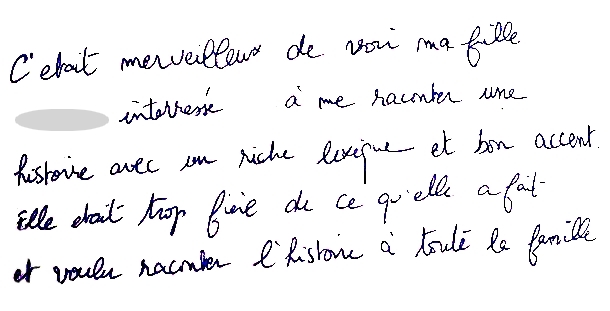 C'etait merveilleux de voir ma fille
interressé à me raconter une
histoire avec un riche lexique et bon accent.
Elle etait trop fière de ce qu'elle a fait
et voulu raconter l'histoire à touté la famille